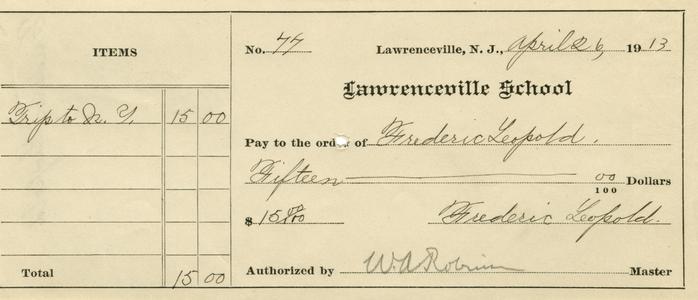 ITEMS
Trip to N. Y. 15 00
Total 15 00
No. 77 Lawrenceville, N. J., April 26, 1913
Lawrenceville School
Pay to the order of Frederic Leopold.
Fifteen 00/100 Dollars
$ 15 00/100 Frederic Leopold.
Authorized by W. A. Robinson Master